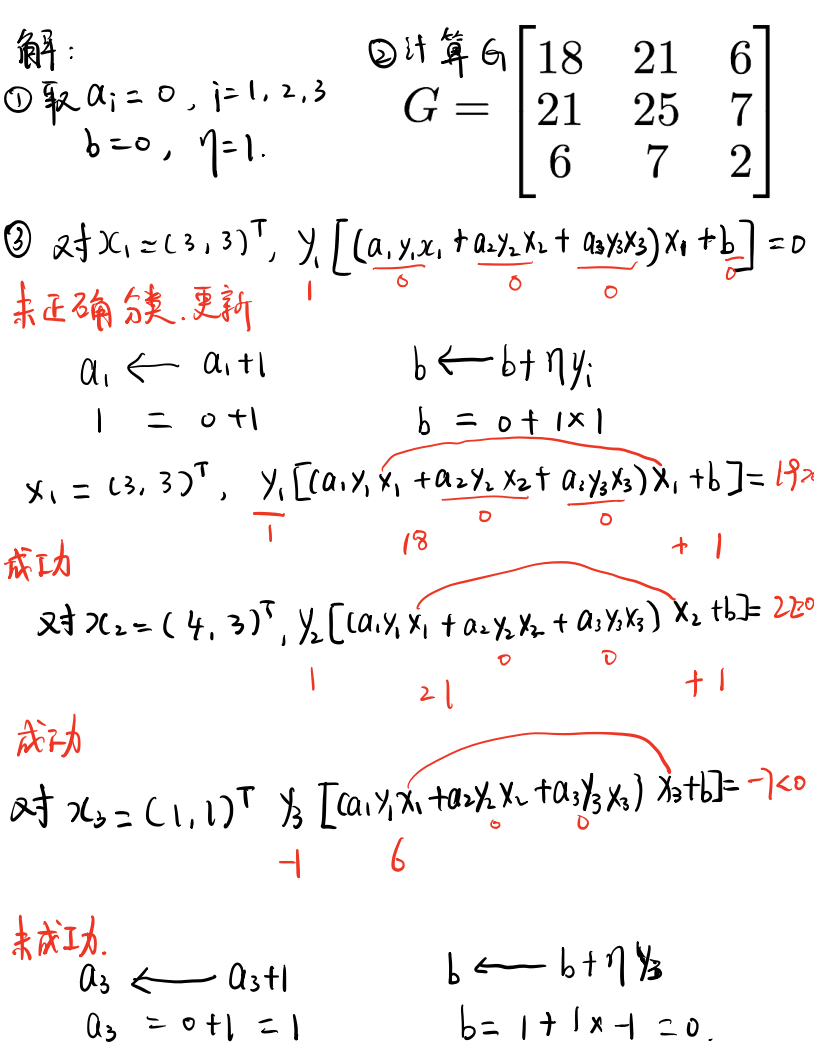 解:
① 取 aᵢ = 0, i=1, 2, 3
b=0, η=1.
② 计算 G
G = [18 21 6
21 25 7
6 7 2]
③ 对 x₁ = (3, 3)ᵀ, y₁[(a₁y₁x₁ + a₂y₂x₂ + a₃y₃x₃)x₁ + b] = 0
1 0 0 0 0
未正确分类.更新
a₁ ← a₁+1 b ← b+ηyᵢ
1 = 0+1 b = 0+1×1
x₁ = (3, 3)ᵀ, y₁[(a₁y₁x₁ + a₂y₂x₂ + a₃y₃x₃)x₁ + b] = 19>
1 0 0
18 + 1
成功
对 x₂ = (4, 3)ᵀ, y₂[(a₁y₁x₁ + a₂y₂x₂ + a₃y₃x₃)x₂ + b] =
0 0
1 21 + 1
成功
对 x₃ = (1, 1)ᵀ y₃[(a₁y₁x₁ + a₂y₂x₂ + a₃y₃x₃)x₃ + b] = -7<0
0 0
-1 6
未成功.
a₃ ← a₃+1 b ← b+ηy₃
a₃ = 0+1 = 1 b = 1+1×-1 = 0.